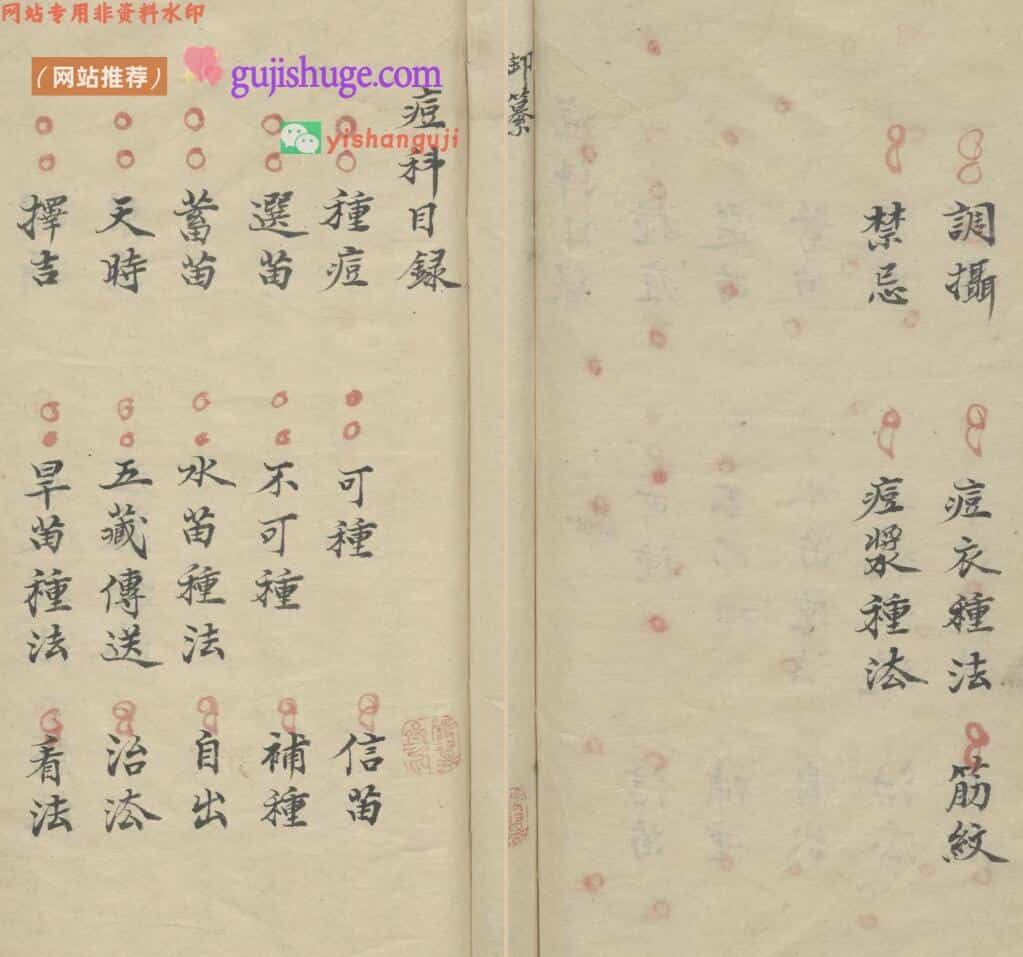 网站专用非资料水印
（网站推荐）
gujishuge.com
yishanguji
御纂
痘科目録
種痘 可種 信苗
選苗 不可種 補種
蓄苗 水苗種法 自出
天時 五藏傳送 治法
擇吉 旱苗種法 看法
調攝 痘衣種法 筋紋
禁忌 痘漿種法